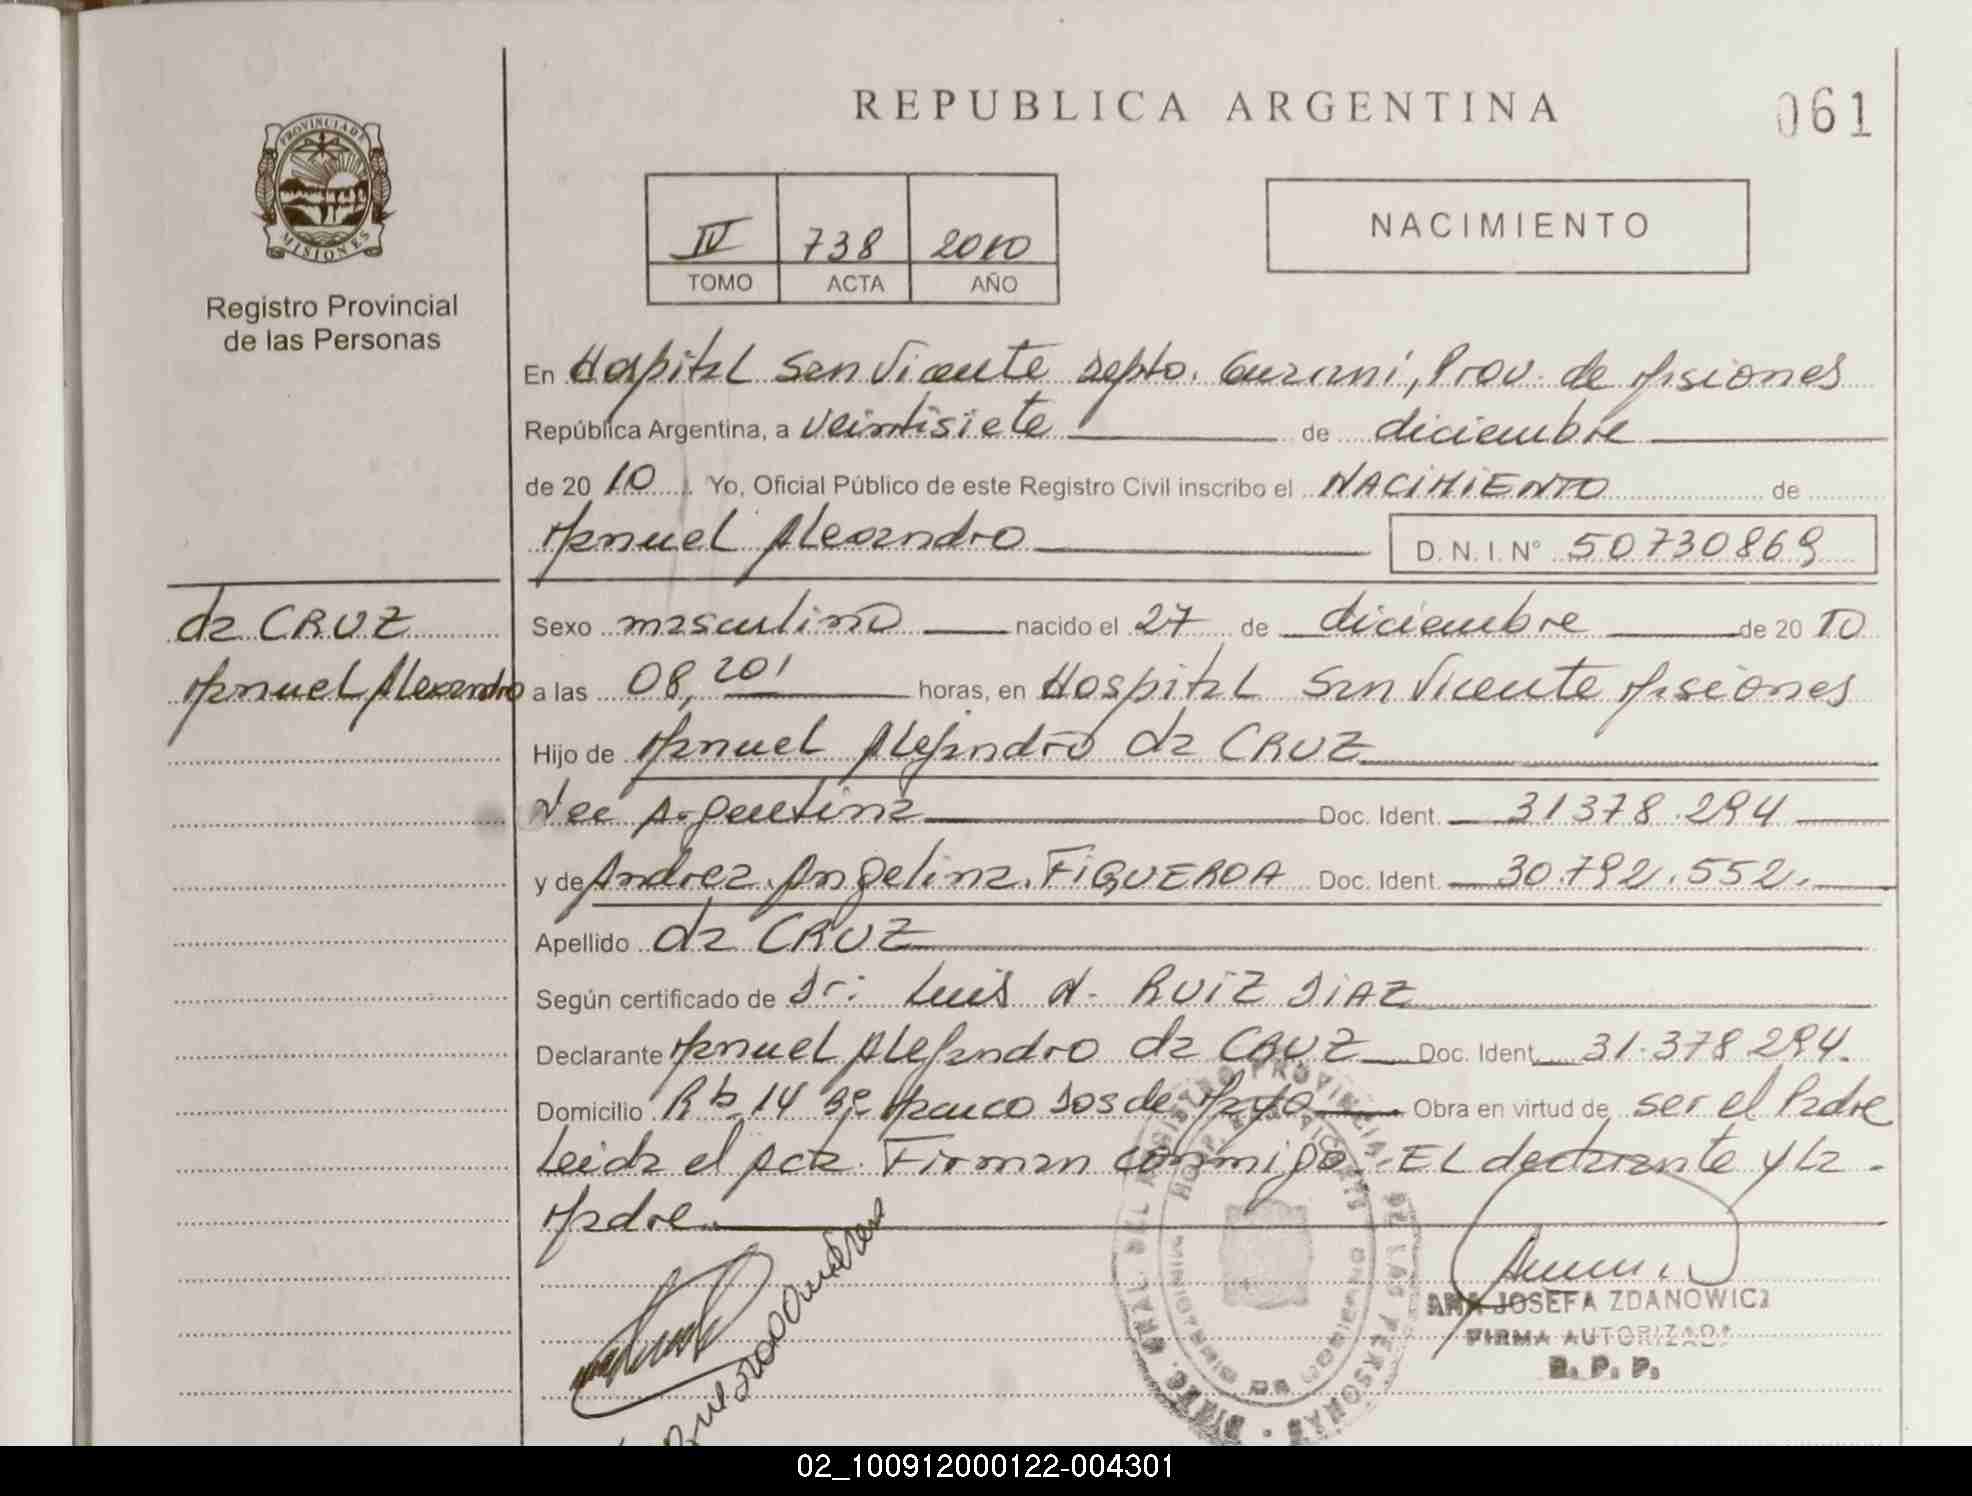 REPUBLICA ARGENTINA
061
PROVINCIA DE
MISIONES
Registro Provincial
de las Personas
IV 738 2010
TOMO ACTA AÑO
NACIMIENTO
En Hospital San Vicente Depto. Guarani, Prov. de Misiones
República Argentina, a veintisiete de diciembre
de 2010 Yo, Oficial Público de este Registro Civil inscribo el NACIMIENTO de
Manuel Alexandro D.N.I. Nº 50730869
da CRUZ
Manuel Alexandro
Sexo masculino nacido el 27 de diciembre de 2010
a las 08,20' horas, en Hospital San Vicente Misiones
Hijo de Manuel Alejandro da CRUZ
Nac Argentina Doc. Ident. 31378.294
y de Andrea Angelina FIGUEROA Doc. Ident. 30.792.552.
Apellido da CRUZ
Según certificado de Dr: Luis N. RUIZ DIAZ
Declarante Manuel Alejandro da CRUZ Doc. Ident. 31.378294.
Domicilio 14 Dos de Mayo Obra en virtud de ser el Padre
Leida el Acta. Firman conmigo. El declarante y la
Madre
ANA JOSEFA ZDANOWICZ
FIRMA AUTORIZADA
R. P. P.
02_100912000122-004301